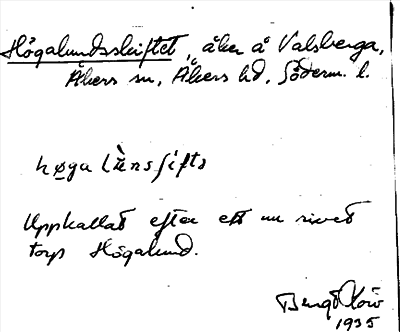 Högalundsskiftet, åker å Valsberga,
Åkers sn, Åkers hd, Söderm. l.
høga lùnsſifts
Uppkallat efter ett nu rivet
torp Högalund.
Bengt
1935